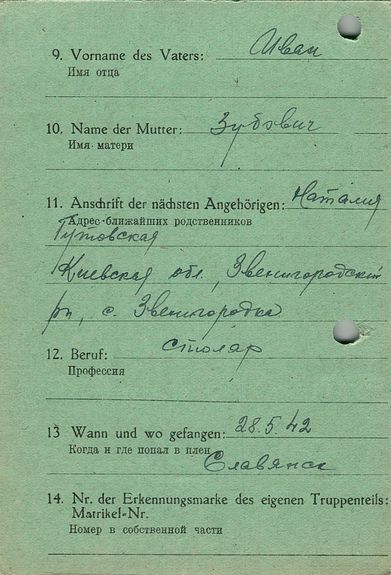 9. Vorname des Vaters: Иван
Имя отца
10. Name der Mutter: Зубович
Имя матери
11. Anschrift der nächsten Angehörigen: Наталия
Адрес ближайших родственников
Гутовская
Киевская обл, Звенигородский
рн, с. Звенигородка
12. Beruf: столяр
Профессия
13 Wann und wo gefangen: 28.5.42
Когда и где попал в плен
Славянск
14. Nr. der Erkennungsmarke des eigenen Truppenteils:
Matrikel-Nr.
Номер в собственной части